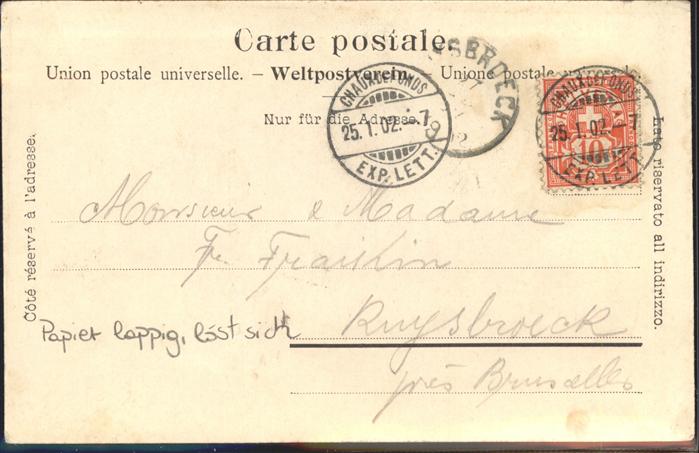 Carte postale.
Union postale universelle. – Weltpostverein. Unione postale
Nur für die Adresse.
CHAUX DE FONDS
25. I. 02. - 7
EXP. LETT.
SBROECK
CHAUX DE FONDS
25. I. 02. - 7
EXP. LETT.
10
Côté réservé à l'adresse.
Lato riservato all indirizzo.
Monsieur & Madame
Fr. Fraikin
Ruysbroeck
près Bruxelles
Papier lappig, löst sich